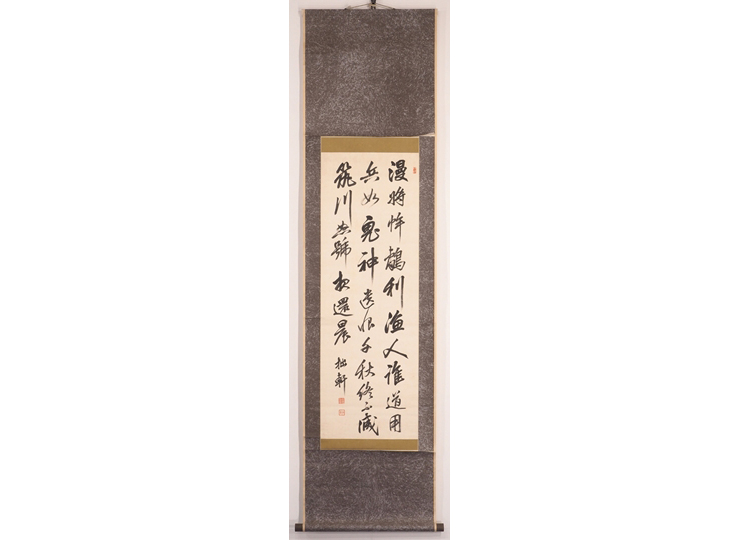 漫將蚌鷸利漁人誰道用
兵如鬼神遺恨千秋終不滅
川號夜還晨
拙軒